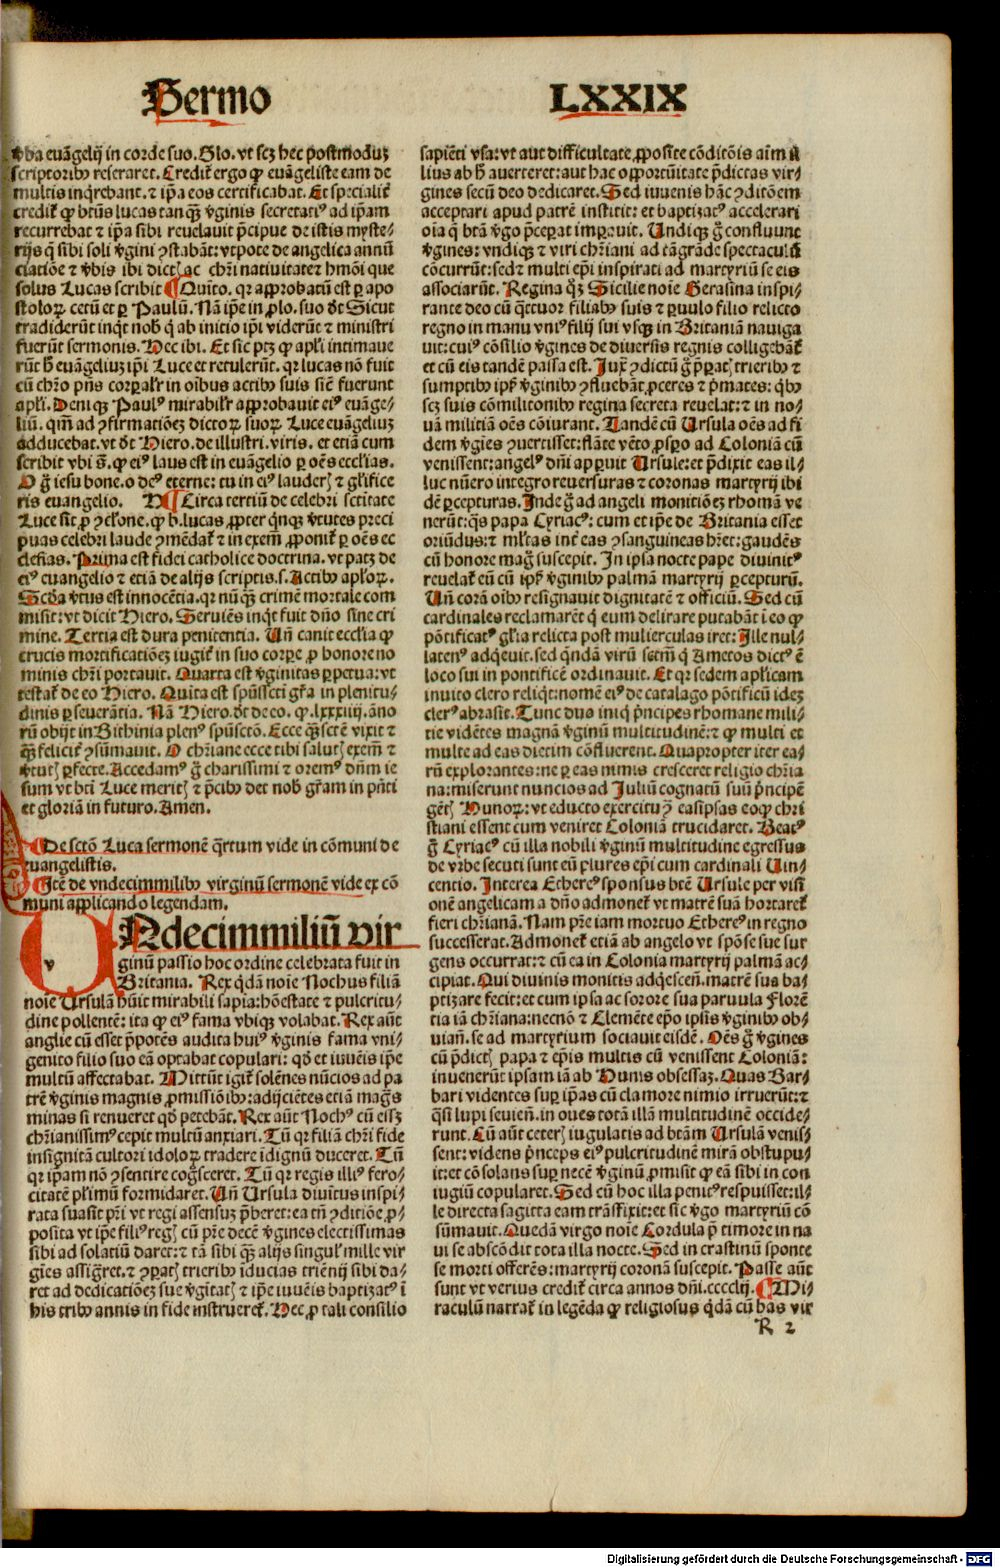 Sermo LXXIX
v̄ba euāgelij in corde suo. Glo. vt scz hec postmoduz
scriptoribꝰ reseraret. Credit̄ ergo ꝙ euāgeliste eam de
multis inq̄rebant. ⁊ ip̄a eos certificabat. Et specialit̄
credit̄ ꝙ bt̄us lucas tanq̄ꝫ v̄ginis secretariꝰ ad ip̄am
recurrebat ⁊ ip̄a sibi reuelauit p̄cipue de istis myste-
rijs q̄ sibi soli v̄gini ꝯstabāt: vtpote de angelica annū
ciatiōe ⁊ v̄bis ibi dictꝭ ac chr̄i natiuitatez hmōi que
solus Lucas scribit ¶ Quīto. qꝛ approbatū est ꝑ apo
stoloꝝ cetū et ꝑ Paulū. Nā ip̄e in ꝓlo. suo dt̄ Sicut
tradiderūt inqt̄ nob̄ q̄ ab initio ip̄i viderūt ⁊ ministri
fuerūt sermonis. Hec ibi. Et sic ptꝫ ꝙ apl̄i intimaue
rūt h̄ euāgeliuꝫ ip̄i Luce et retulerūt. qꝛ lucas nō fuit
cū chr̄o pn̄s corꝑalr̄ in oībus actibꝰ suis sicut fuerunt
apl̄i. Deniqꝫ Paulꝰ mirabilr̄ approbauit eiꝰ euāge-
liū. qm̄ ad ꝯfirmatiōeꝫ dictoꝝ suoꝝ Luce euāgeliuꝫ
adducebat. vt dt̄ Hiero. de illustri. viris. et etiā cum
scribit vbi s̄. ꝙ eiꝰ laus est in euāgelio ꝑ oēs eccl̄ias.
O ḡ iesu bone. o deꝰ eterne: tu in eiꝰ lauderꝭ ⁊ gl̄ifice
ris euangelio. H ¶ Circa tertiū de celebri sctitate
Luce sit ꝓ ꝯclōne. ꝙ b. lucas ꝓpter q̄nqꝫ v̄tutes preci
puas celebri laude ꝯmēdat̄ ⁊ in exem̄ ꝓponit̄ ꝑ oēs ec
clesias. Prima est fidei catholice doctrina. vt patꝫ de
eiꝰ euangelio ⁊ etiā de alijs scriptis .s. Actibꝰ apl̄oꝝ.
Scd̄a v̄tus est innocētia. qꝛ nūqꝫ crimē mortale com
misit: vt dicit Hiero. Seruiēs inqt̄ fuit dn̄o sine cri
mine. Tertia est dura penitentia. Vn̄ canit eccl̄ia ꝙ
crucis mortificatiōeꝫ iugit̄ in suo corꝑe ꝓ honore no
minis chr̄i portauit. Quarta est v̄ginitas ꝑpetua: vt
testat̄ de eo Hiero. Quīta est spūssctī gr̄a in plenitu-
dinis ꝑseuerātia. Nā Hiero. dt̄ de eo. ꝙ. lxxxiiij. āno
rū obijt in Bithinia plenꝰ spūsctō. Ecce q̄ꝫ sctē vixit ⁊
q̄ꝫ felicit̄ ꝯsūmauit. O chr̄iane ecce tibi salutꝭ exem̄ ⁊
v̄tutꝭ ꝑfecte. Accedamꝰ ḡ charissimi ⁊ oremꝰ dn̄m ie
sum vt bt̄i Luce meritꝭ ⁊ p̄cibꝰ det nob̄ gr̄am in pn̄ti
et gloriā in futuro. Amen.
¶ De sctō Luca sermonē q̄rtum vide in cōmuni de
euangelistis.
¶ Itē de vndecimmilibꝰ virginū sermonē vide ex cō
muni applicando legendam.
UNdecimmiliū vir
ginū passio hoc ordine celebrata fuit in
Britania. Rex q̄dā noīe Nothus filiā
noīe Ursulā hūit mirabili sapīa: hōestate ⁊ pulcritu-
dine pollentē: ita ꝙ eiꝰ fama vbiqꝫ volabat. Rex aūt
anglie cū esset p̄potēs audita huiꝰ v̄ginis fama vni-
genito filio suo eā optabat copulari: qd̄ et iuuēis ip̄e
multū affectabat. Mittūt igit̄ solēnes nūcios ad pa
trē v̄ginis magnis ꝓmissiōibꝰ: adijciētes etiā maḡs
minas si renueret qd̄ petebāt. Rex aūt Nothꝰ cū eēꝫ
chr̄ianissimꝰ cepit multū anxiari. Tū qꝛ filiā chr̄i fide
insignitā cultori idoloꝝ tradere īdignū duceret. Tū
qꝛ ip̄am nō ꝯsentire coḡsceret. Tū qꝛ regis illiꝰ fero-
citatē pl̄imū formidaret. Vn̄ Ursula diuītus inspi-
rata suasit p̄ri vt regi assensuꝫ p̄beret: ea tn̄ ꝯditiōe ꝓ-
posita vt ip̄e filiꝰ regꝭ cū pr̄e decē v̄gines electissimas
sibi ad solatiū daret: ⁊ tā sibi q̄ꝫ alijs singul̄ mille vir
gīes assiḡret. ⁊ ꝯꝑatꝭ trieribꝰ īducias triēnij sibi da-
ret ad dedicatiōeꝫ sue v̄gītatꝭ ⁊ ip̄e iuuēis baptizatꝰ ī
his tribꝰ annis in fide instrueret̄. Hec ꝓ tali consilio
sapiēti vsa: vt aut difficultate ꝓposite cōditōis aīm il
lius ab h̄ auerteret: aut hac oꝓportūitate p̄dictas vir-
gines secū deo dedicaret. Sed iuuenis hāc ꝯditōem
acceptari apud patrē institit: et baptizatꝰ accelerari
oīa q̄ btā v̄go p̄ceꝑat imꝑauit. Undiqꝫ ḡ confluunt
v̄gines: vndiqꝫ ⁊ viri chr̄iani ad tā grāde spectaculū
cōcurrūt: sedꝫ ⁊ multi ep̄i inspirati ad martyriū se eis
associarūt. Regina qꝫ Sicilie noīe Gerasina inspi-
rante deo cū q̄ttuor filiabꝰ suis ⁊ ꝑuulo filio relicto
regno in manu vniꝰ filij sui vsqꝫ in Britaniā nauiga
uit: cuiꝰ cōsilio v̄gines de diuersis regnis colligebāt̄
et cū eis tandē passa est. Iux̄ ꝯdictū ḡ p̄paratꝭ trieribꝰ ⁊
sumptibꝰ ip̄ꝭ v̄ginibꝰ ꝯfluebāt ꝓceres ⁊ p̄mates: q̄bꝰ
scꝫ suis cōmilitonibꝰ regina secreta reuelat: ⁊ in no-
uā militiā oēs cōiurant. Tandē cū Ursula oēs ad fi
dem v̄gīes ꝯuertisset: flāte vēto ꝓspo ad Coloniā cū
venissent: angelꝰ dn̄i apꝑuit Ursule: et p̄dixit eas il-
luc nūero integro reuersuras ⁊ coronas martyrij ibi
dē ꝑcepturas. Inde ḡ ad angeli monitiōeꝫ rhomā ve
nerūt: q̄s papa Cyriacꝰ: cum et ip̄e de Britania esset
oriūdus: ⁊ ml̄tas int̄ eas ꝯsanguineas hr̄et: gaudēs
cū honore maḡ suscepit. In ipsa nocte pape diuinitꝰ
reuelat̄ cū cū ip̄ꝭ v̄ginibꝰ palmā martyrij ꝑcepturū.
Vn̄ corā oībꝰ resignauit dignitatē ⁊ officiū. Sed cū
cardinales reclamarēt q̄ eum delirare putabāt ī eo ꝙ
pōtificatꝰ gl̄ia relicta post mulierculas iret: Ille nul-
latenꝰ adq̄euit. sed q̄ndā virū sctm̄ q̄ Ametos dictꝰ ē
loco sui in pontificē ordinauit. Et qꝛ sedem apl̄icam
inuito clero reliq̄t: nomē eiꝰ de catalago pōtificū ideꝫ
clerꝰ abrasit. Tunc duo iniq̄ p̄ncipes rhomane mili-
tie vidētes magnā v̄ginū multitudinē: ⁊ ꝙ multi et
multe ad eas dietim cōfluerent. Quapropter iter ea-
rū explorantes: ne ꝑ eas nimis cresceret religio chr̄ia
na: miserunt nuncios ad Juliū cognatū suū p̄ncipē
gētꝭ Hunoꝝ: vt educto exercitu ꝯ easipsas eoqꝫ chri
stiani essent cum veniret Coloniā trucidaret. Beatꝰ
ḡ Cyriacꝰ cū illa nobili v̄ginū multitudine egressus
de vrbe secuti sunt eū plures ep̄i cum cardinali Uin-
centio. Interea Ethereꝰ sponsus bt̄e Ursule per visi
onē angelicam a dn̄o admonet̄ vt matrē suā hortaret̄
fieri chr̄ianā. Nam pr̄e iam mortuo Ethereꝰ in regno
successerat. Admonet̄ etiā ab angelo vt spōse sue sur
gens occurrat: ⁊ cū ea in Colonia martyrij palmā ac-
cipiat. Qui diuinis monitis adq̄escen̄. matrē sus ba-
ptizare fecit: et cum ipsa ac sorore sua paruula Florē
tia iā chr̄iana: necnō ⁊ Clemēte ep̄o ipsis v̄ginibꝰ ob-
uian̄. se ad martyrium sociauit eisdē. Oēs ḡ v̄gines
cū p̄dictꝭ papa ⁊ ep̄is multis cū venissent Coloniā:
inuenerūt ipsam iā ab Hunis obsessaꝫ. Quas Bar-
bari videntes suꝑ ip̄as cū clamore nimio irruerūt: ⁊
q̄si lupi seuien̄. in oues totā illā multitudinē occide-
runt. Cū aūt ceterꝭ iugulatis ad btām Ursulā venis-
sent: videns p̄nceps eiꝰ pulcritudinē mirā obstupu-
it: et cōsolans suꝑ necē v̄ginū ꝓmisit ꝙ eā sibi in con
iugiū copularet. Sed cū hoc illa penitꝰ respuisset: il-
le directa sagitta eam trāsfixit: et sic v̄go martyriū cō
sūmauit. Quedā virgo noīe Cordula p̄ timore in na
ui se abscōdit tota illa nocte. Sed in crastinū sponte
se morti offerēs: martyrij coronā suscepit. Passe aūt
sunt vt verius credit̄ circa annos dn̄i. cccclij. ¶ Mi-
raculū narrat̄ in legēda ꝙ religiosus q̄dā cū has vir
R 2
Digitalisierung gefördert durch die Deutsche Forschungsgemeinschaft - DFG